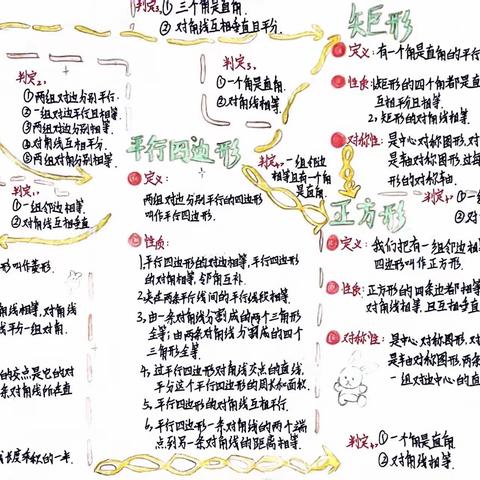 判定3、① 三个角是直角.
② 对角线互相垂直且平分.
判定2、
①两组对边分别平行.
②一组对边平行且相等
③两组对边分别相等.
④对角线互相平分.
⑤两组对角分别相等.
判定1、
①一组邻边相等.
②对角线互相垂直
形叫作菱形.
线相等, 对角
线平分一组对角.
的交点是它的对
条对角线所在直
长度乘积的一半.
判定3、
①一个角是直角.
②对角线相等.
平行四边形
定义:
两组对边分别平行的四边形
叫作平行四边形.
性质:
1.平行四边形的对边相等,平行四边形
的对角相等,邻角互补.
2.夹在两条平行线间的平行线段相等.
3,由一条对角线分割成的两个三角形
全等;由两条对角线分割成的四个
三角形全等.
4,过平行四边形对角线交点的直线,
平分这个平行四边形的周长和面积.
5,平行四边形的对角线互相平行.
6,平行四边形一条对角线的两个端
点到另一条对角线的距离相等.
一组邻边
相等且有一个角
是直角.
矩形
定义:有一个角是直角的平行
性质:矩形的四个角都是直
互相平分且相等.
2,矩形的对角线相
对称性:是中心对称图形,对
是轴对称图形,过每
形的对称轴.
正方形
定义:我们把有一组邻边相
四边形叫作正方形.
性质:正方形的四条边都相
对角线相等,且互相垂直
对称性:是中心对称图形,对
是轴对称图形,两条
一组对边中心的直
判定4、①一个角是直角
②对角线相等.